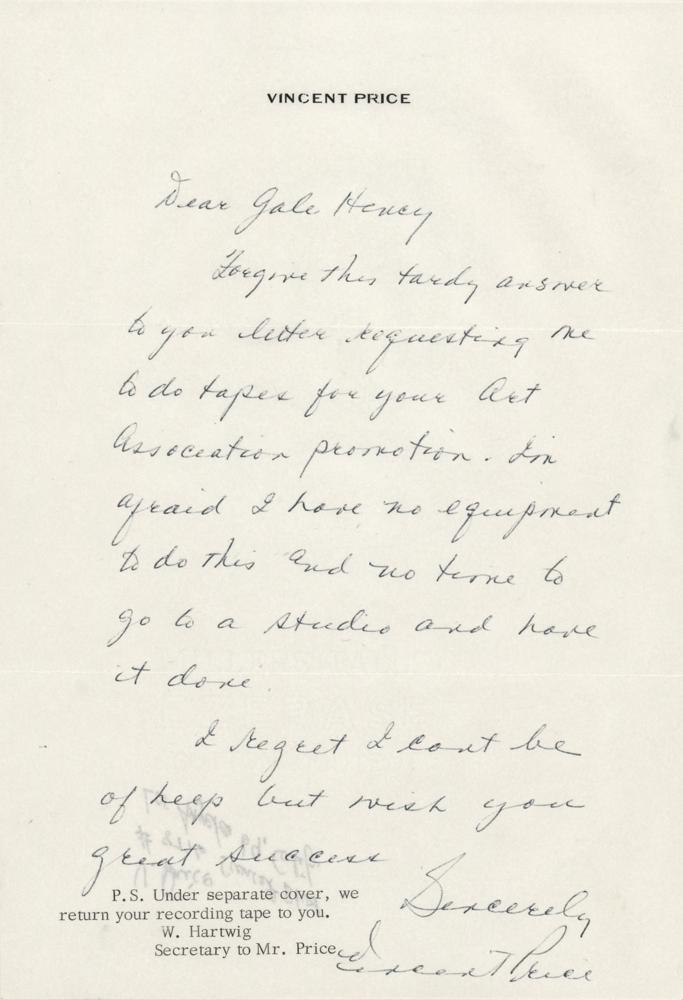 VINCENT PRICE
Dear Gale Henry
Forgive this tardy answer
to you letter requesting me
to do tapes for your Art
Association promotion. I'm
afraid I have no equipment
to do this and no time to
go to a studio and have
it done.
I regret I can't be
of help but wish you
great success
Sincerely
Vincent Price
P.S. Under separate cover, we
return your recording tape to you.
W. Hartwig
Secretary to Mr. Price